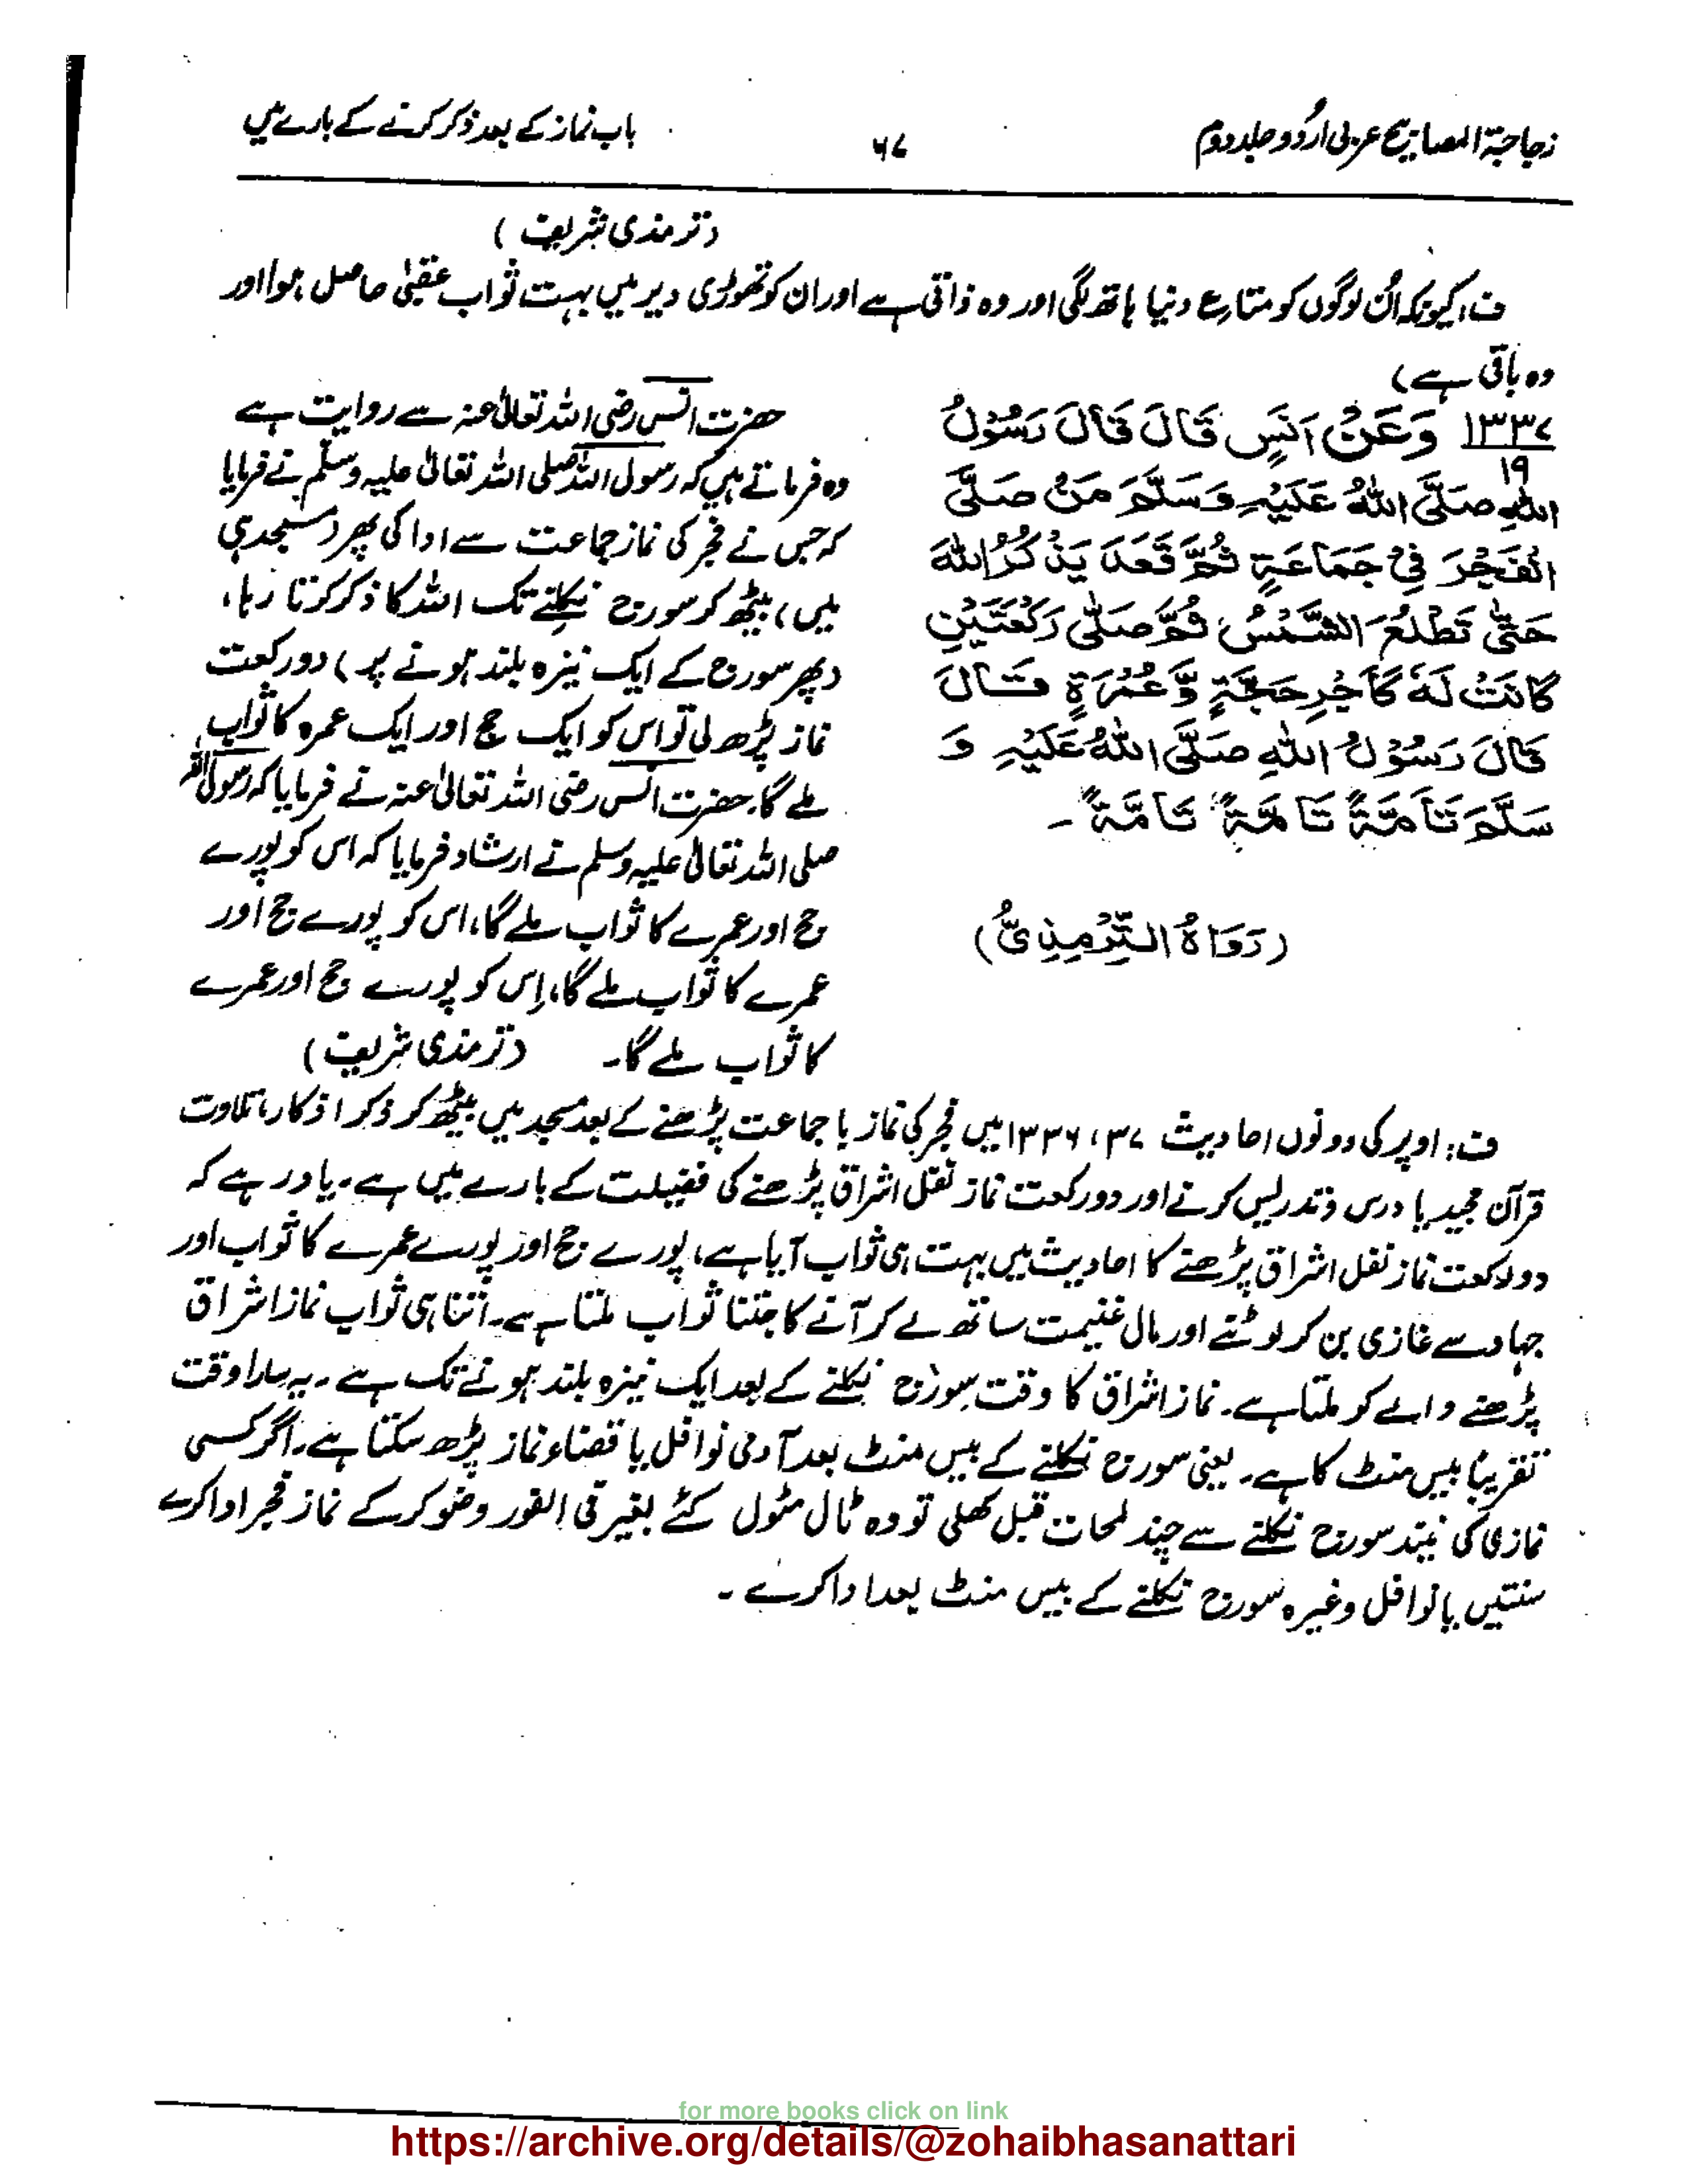 زجاجۃ المصابیح عربی اردو جلد دوم
۶۷
باب نماز کے بعد ذکر کرنے کے بارے میں
(ترمذی شریف)
ف: کیونکہ اُن لوگوں کو متاع دنیا ہاتھ لگی اور وہ ذاتی ہے اور ان کو تھوڑی دیر میں بہت ثواب عقبیٰ حاصل ہوا اور
وہ باقی ہے)
۱۳۳۷ وَعَنْ اَنَسٍ قَالَ قَالَ رَسُوْلُ
۱۹
اللّٰهِ صَلَّى اللّٰهُ عَلَيْهِ وَسَلَّمَ مَنْ صَلَّى
الْفَجْرَ فِيْ جَمَاعَةٍ ثُمَّ قَعَدَ يَذْكُرُ اللّٰهَ
حَتّٰى تَطْلُعَ الشَّمْسُ ثُمَّ صَلّٰى رَكْعَتَيْنِ
كَانَتْ لَهٗ كَاَجْرِ حَجَّةٍ وَّعُمْرَةٍ قَالَ
قَالَ رَسُوْلُ اللّٰهِ صَلَّى اللّٰهُ عَلَيْهِ وَ
سَلَّمَ تَآمَّةً تَآمَّةً تَآمَّةً ۔
(رَوَاهُ التِّرْمِذِيُّ)
حضرت انس رضی اللہ تعالیٰ عنہ سے روایت ہے
وہ فرماتے ہیں کہ رسول اللہ صلی اللہ تعالیٰ علیہ وسلم نے فرمایا
کہ جس نے فجر کی نماز جماعت سے ادا کی پھر (مسجد ہی
میں) بیٹھ کر سورج نکلنے تک اللہ کا ذکر کرتا رہا،
(پھر سورج کے ایک نیزہ بلند ہونے پر) دو رکعت
نماز پڑھ لی تو اس کو ایک حج اور ایک عمرہ کا ثواب
ملے گا۔ حضرت انس رضی اللہ تعالیٰ عنہ نے فرمایا کہ رسول اللہ
صلی اللہ تعالیٰ علیہ وسلم نے ارشاد فرمایا کہ اس کو پورے
حج اور عمرے کا ثواب ملے گا، اس کو پورے حج اور
عمرے کا ثواب ملے گا، اِس کو پورے حج اور عمرے
کا ثواب ملے گا۔ (ترمذی شریف)
ف: اوپر کی دونوں احادیث ۳۷، ۱۳۳۶ میں فجر کی نماز با جماعت پڑھنے کے بعد مسجد میں بیٹھ کر ذکر اذکار، تلاوت
قرآن مجید یا درس و تدریس کرنے اور دو رکعت نماز نفل اشراق پڑھنے کی فضیلت کے بارے میں ہے۔ یاد رہے کہ
دو رکعت نماز نفل اشراق پڑھنے کا احادیث میں بہت ہی ثواب آیا ہے، پورے حج اور پورے عمرے کا ثواب اور
جہاد سے غازی بن کر لوٹنے اور مال غنیمت ساتھ لے کر آنے کا جتنا ثواب ملتا ہے۔ اتنا ہی ثواب نماز اشراق
پڑھنے والے کو ملتا ہے۔ نماز اشراق کا وقت سورج نکلنے کے بعد ایک نیزہ بلند ہونے تک ہے ۔ یہ سارا وقت
تقریباً بیس منٹ کا ہے۔ یعنی سورج نکلنے کے بیس منٹ بعد آدمی نوافل یا قضاء نماز پڑھ سکتا ہے۔ اگر کسی
نمازی کی نیند سورج نکلنے سے چند لمحات قبل کھلی تو وہ ٹال مٹول کئے بغیر فی الفور وضو کر کے نماز فجر ادا کرے
سنتیں یا نوافل وغیرہ سورج نکلنے کے بیس منٹ بعد ادا کرے ۔
for more books click on link
https://archive.org/details/@zohaibhasanattari